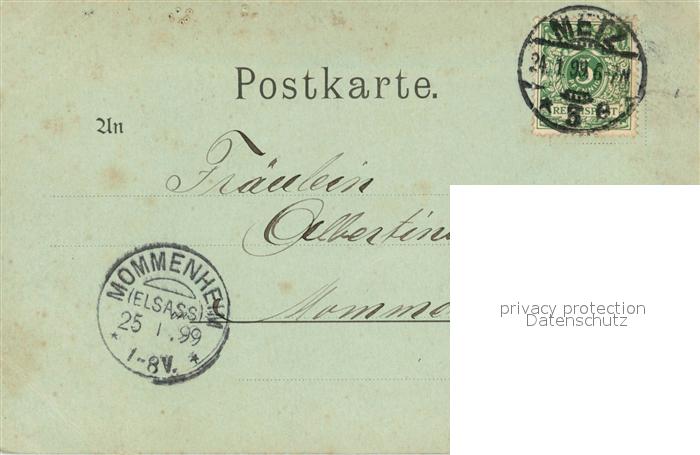 Postkarte.
METZ
24.1.99 6-7N
* 5 e
REICHSPOST
An
Fräulein
Albertin
MOMMENHEIM
(ELSASS)
25 1.99
* 1-8V. *
Momme
privacy protection
Datenschutz